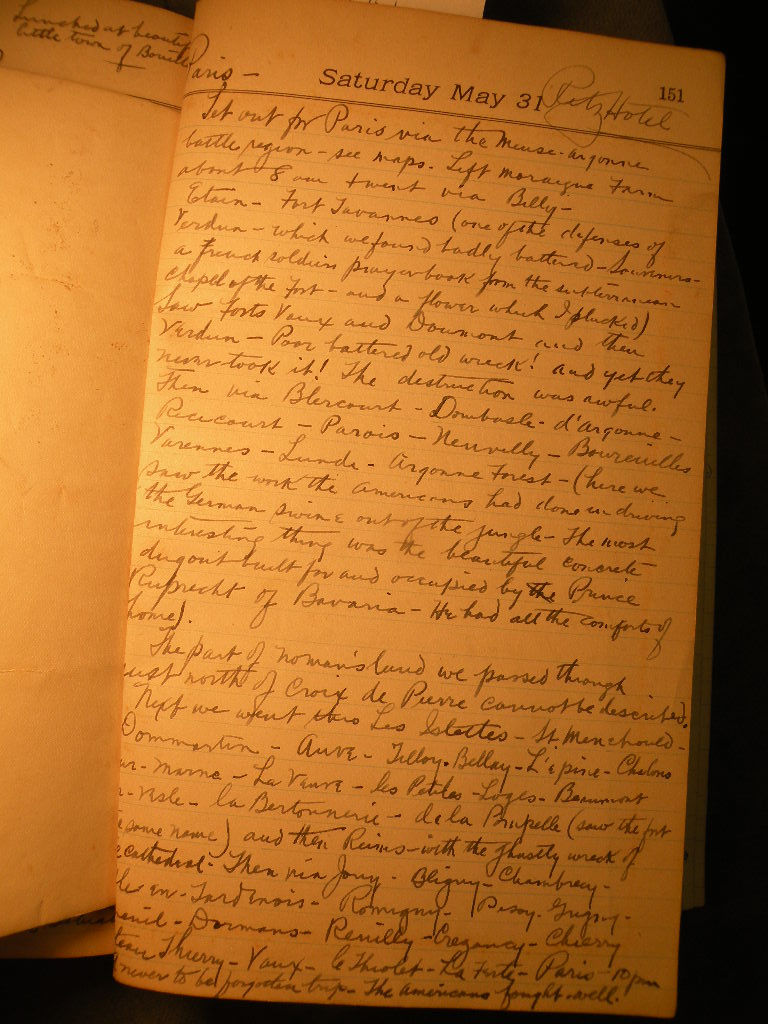 Lunched at beauty
little town of
Paris -
Saturday May 31
151
Ritz Hotel
Set out for Paris via the Meuse-Argonne
battle region - see maps. Left moraigne Farm
about 8 am & went via Billy -
Etain - Fort Tavannes (one of the defenses of
Verdun - which we found badly battered - Souvenirs -
a French soldiers prayerbook from the subterranean
chapel of the Fort - and a flower which I plucked)
Saw Forts Vaux and Doumont and then
Verdun - Poor battered old wreck! and yet they
never took it! The destruction was awful.
Then via Blercourt - Dombasle - d'argonne -
Recicourt - Parois - Neuvilly - Boureuilles
Varennes - Lunde - Argonne Forest - (here we
saw the work the Americans had done in driving
the German swine out of the jungle - The most
interesting thing was the beautiful concrete
dugout built for and occupied by the Prince
Ruprecht of Bavaria - He had all the comforts of
home).
The part of nomansland we passed through
just north of Croix de Pierre cannot be described.
Next we went thro Les Islettes - St. Menehould -
Dommartin - Auve - Tilloy - Bellay - L'epine - Chalons
ur - Marne - La Veuve - les Petites - Loges - Beaumont
r - Vesle - la Bertonnerie - de la Pompelle (saw the fort
e same name) and then Reims - with the ghastly wreck of
e cathedral - Then via Jouy - Bligny - Chambrecy -
lle en - Tardenois - Romigny -
euil - Dormans - Reuilly - Crezancy - Chierry
teau Thierry - Vaux - le Thiolet - La Ferte - Paris - 10 pm
A never to be forgotten trip - The Americans fought well.